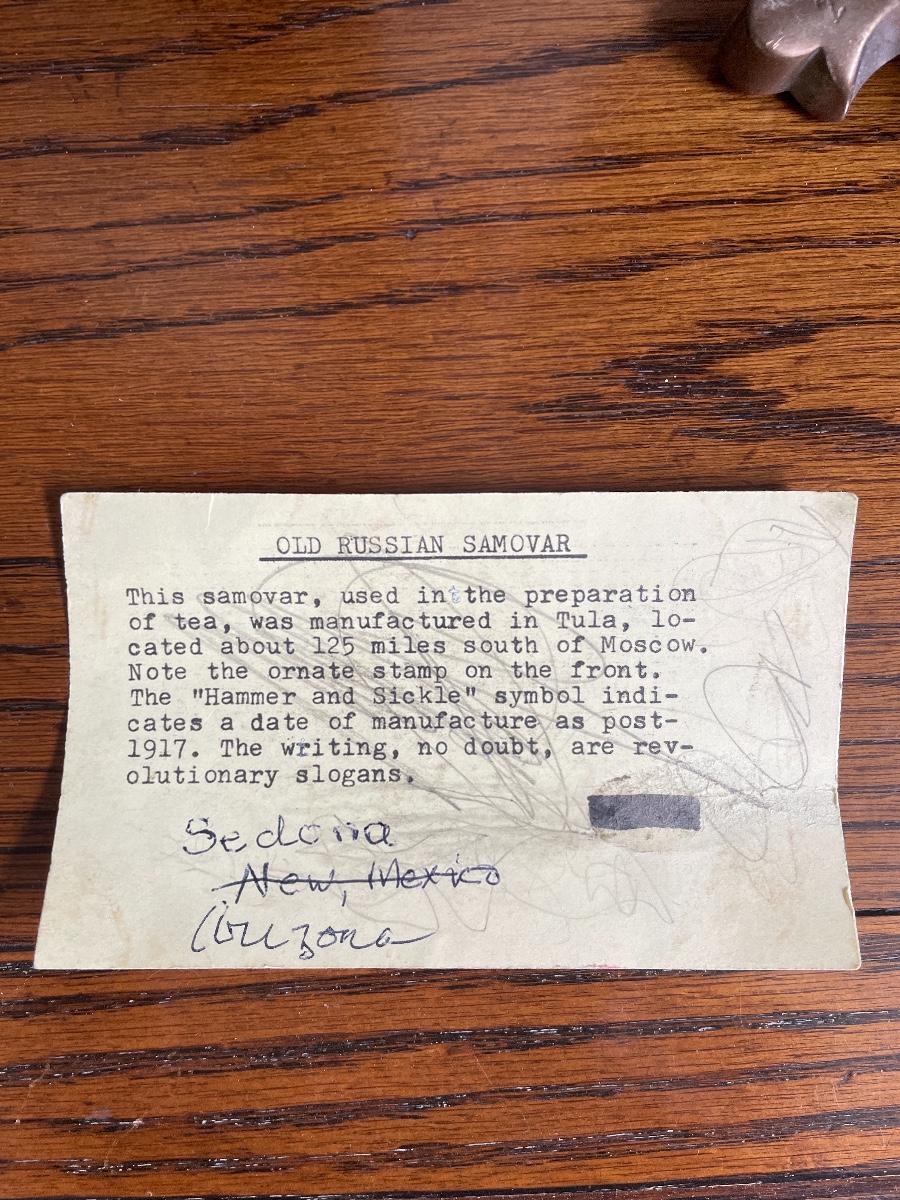 OLD RUSSIAN SAMOVAR
This samovar, used in the preparation
of tea, was manufactured in Tula, lo-
cated about 125 miles south of Moscow.
Note the ornate stamp on the front.
The "Hammer and Sickle" symbol indi-
cates a date of manufacture as post-
1917. The writing, no doubt, are rev-
olutionary slogans.
Sedona
New, Mexico
Arizona